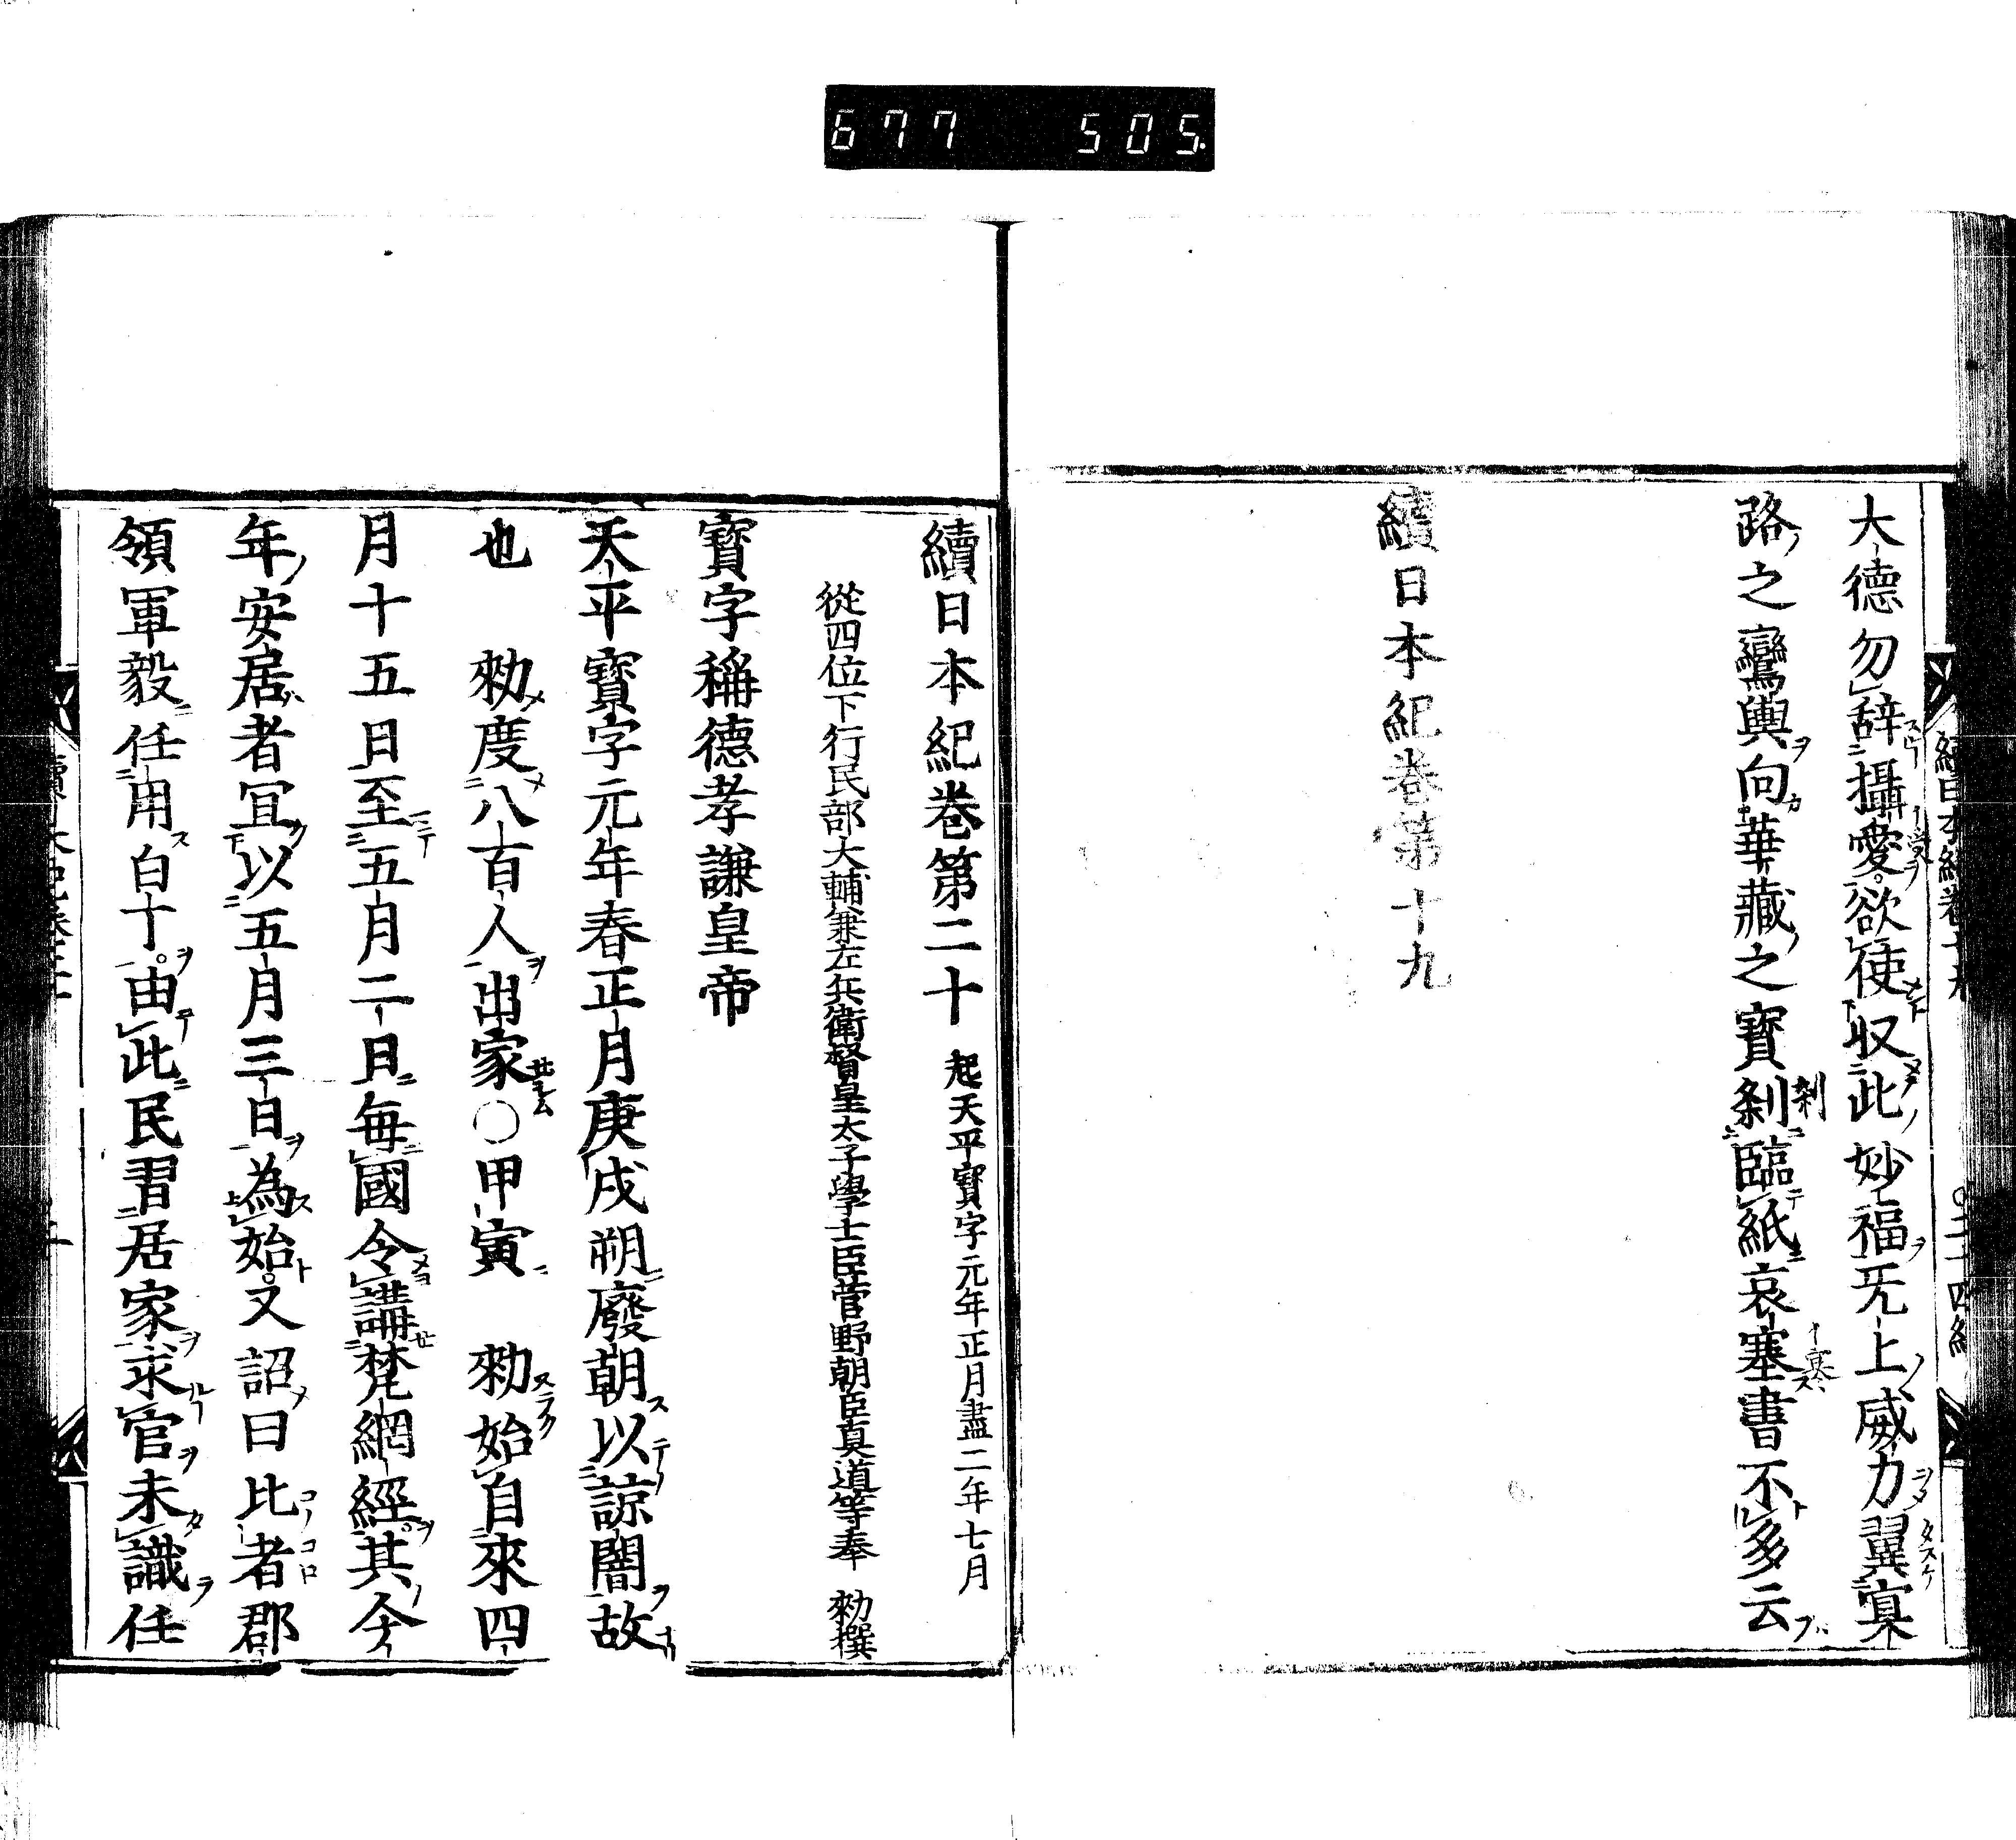 677 505
大德勿辞攝愛欲使収此妙福无上威力翼寘
路之鸞輿向華藏之寶刹臨紙哀塞書不多云
續日本紀卷第十九
續日本紀卷第二十 起天平寶字元年正月盡二年七月
從四位下行民部大輔兼左兵衛督皇太子學士臣菅野朝臣真道等奉 勑撰
寶字稱德孝謙皇帝
天平寶字元年春正月庚戌朔廢朝以諒闇故
也 勑度八百人出家○甲寅 勑始自來四
月十五日至五月二日每國令講梵網經其今
年安居者宜以五月三日為始又詔曰比者郡
領軍毅任用白丁由此民習居家求官未識任